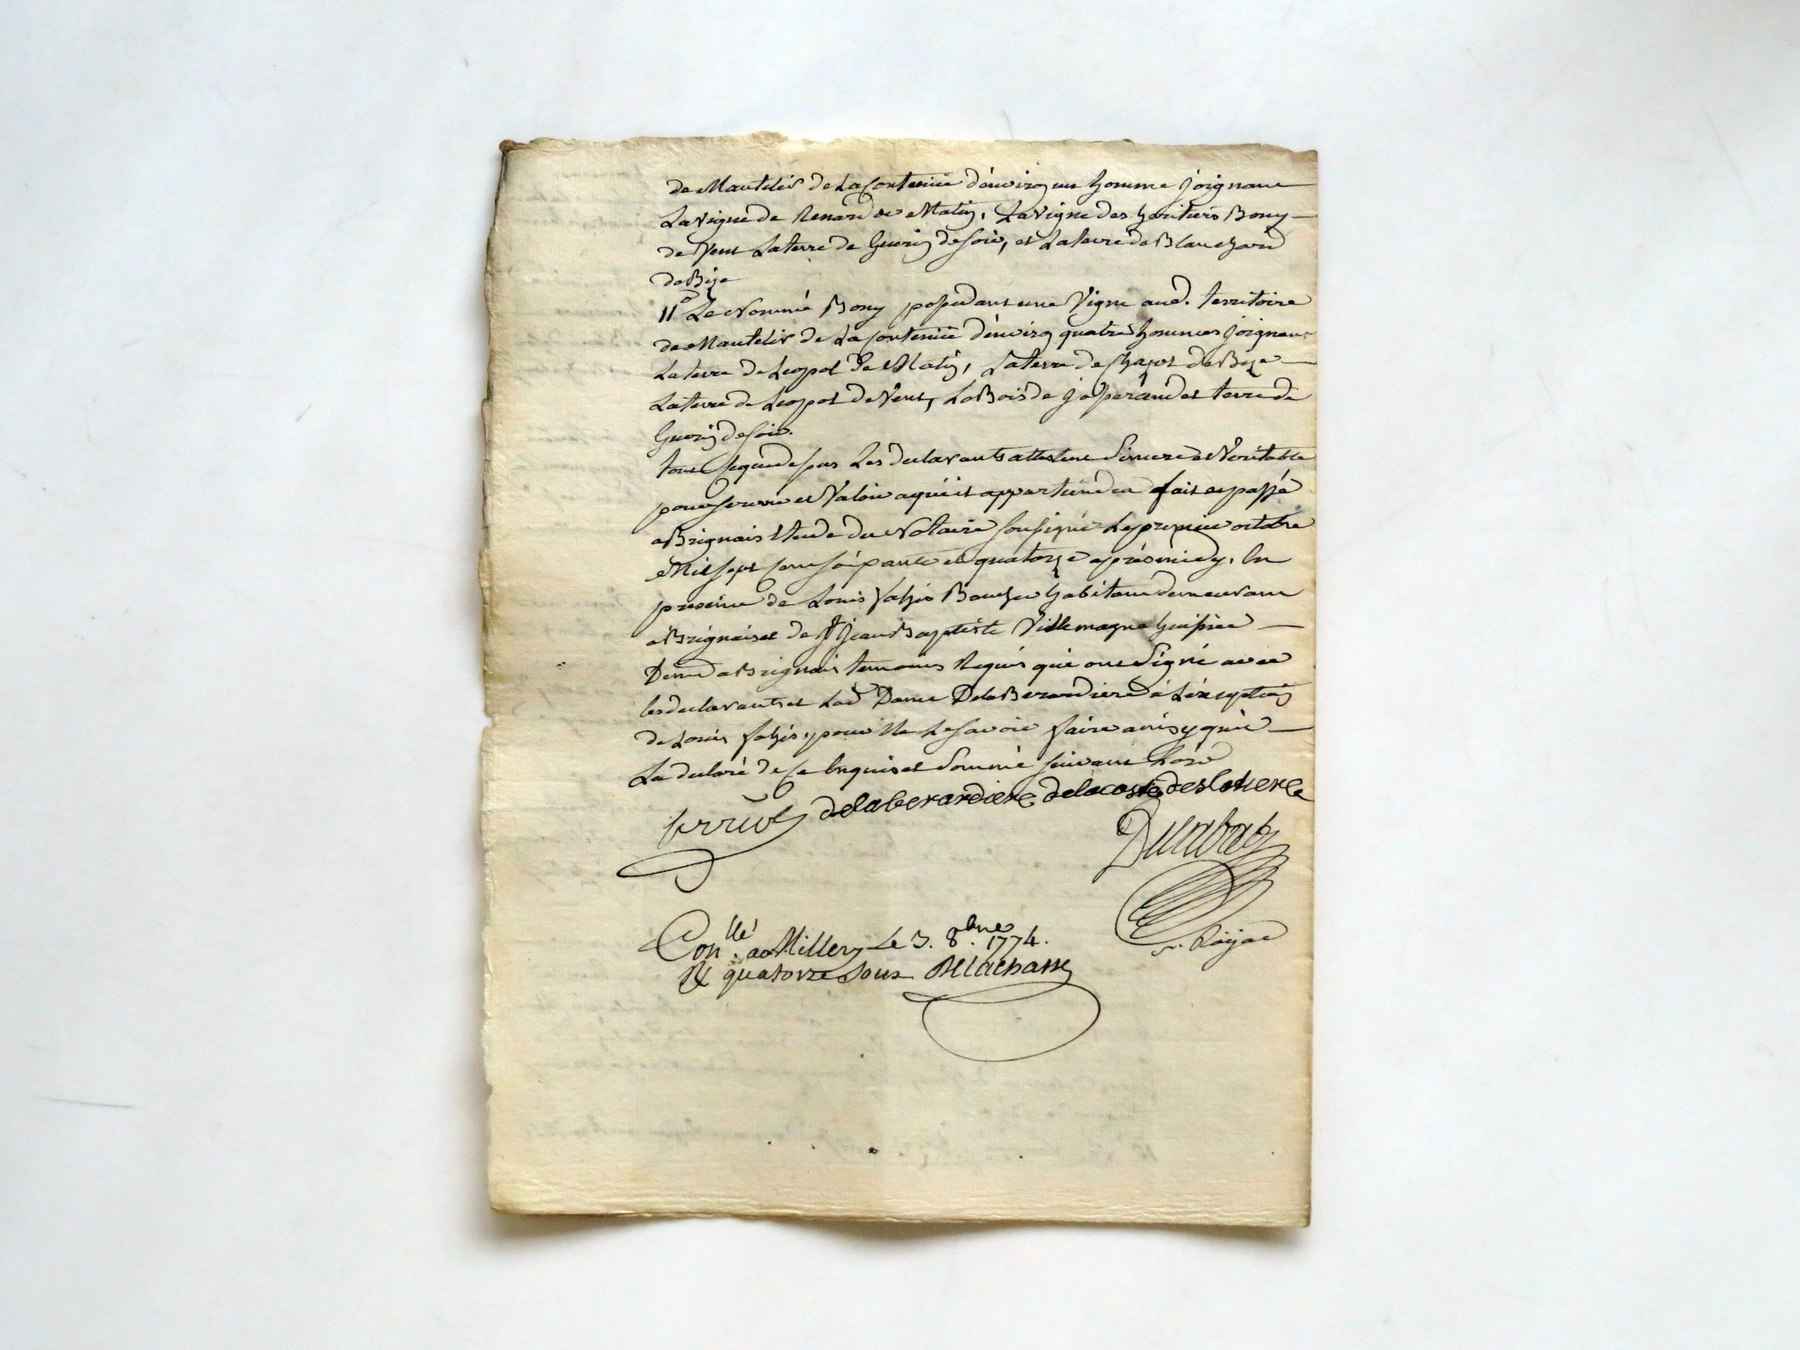 de Mantelis de La Contenüe d'environ un homme joignant
La Vigne de Renard de Matin, La Vigne des heritiers Bony
de Vent La terre de Guerin de soir, et La terre de Blanchard
de Bize
11° Le Nommé Bony possedant une Vigne aud. territoire
de Mantelis de La Contenüe d'environ quatre hommes joignant
La terre de Leopol de Matin, La terre de de Bize
La terre de Leopol de Vent, Le Bois de et terre de
Guerin de soir.
tout Les declarants attestent Sincere et Veritable
pour servir et Valoir a qui il appartiendra fait et passé
a Brignais Etude du Notaire soussigné Le premier octobre
Mil sept cent soixante et quatorze après midy, En
presence de Louis Boucher habitant demeurant
a Brignais et de Sr Jean Baptiste Villemagne huissier
Demt a Brignais temoins Requis qui ont Signé avec
les declarants et Lad. Dame De la Berardiere à L'exception
de Louis pour Ne Le savoir faire ainsy qu'il
La declaré de ce Enquis et Sommé suivant L'ord
delaberardiere delacoste
Conllé a Millery Le 3. 8bre 1774.
R quatorze sous Delachasse